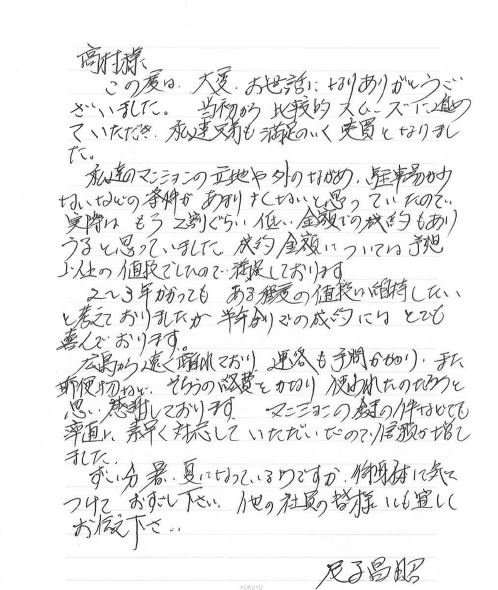 高村様
この度は、大変、お世話になりありがとうご
ざいました。当初から比較的スムーズに進め
ていただき、私達夫婦も満足のいく売買となりまし
た。
私達のマンションの立地や外のながめ、駐車場が少
ないなどの条件があまりよくないと思っていたので
実際は もう2割ぐらい低い金額での成約もあり
うると思っていました。成約金額については予想
以上の値段でしたので満足しております
2〜3年かかっても ある程度の値段は維持したい
と考えておりましたが半年余りでの成約にはとても
喜んでおります。
広島から遠く離れており、連絡も手間がかかり、また
郵便物など、そちらの経費をかなり使われたのだろうと
思い、感謝しております。マンションの鍵の件などでも
率直に素早く対応していただいたので信頼が増し
ました。
ずい分暑い夏になっているようですが、御身体に気を
つけておすごし下さい。他の社員の皆様にも宜しく
お伝え下さい
尾子昌昭
KOKUYO